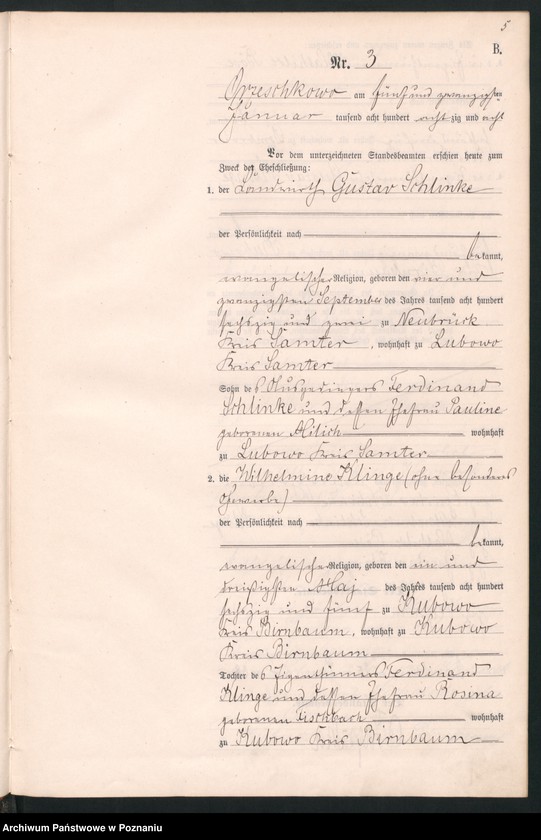 5
B.
Nr. 3
Orzeschkowo am fünf und zwanzigsten
Januar tausend acht hundert achtzig und acht
Vor dem unterzeichneten Standesbeamten erschien heute zum
Zweck der Eheschließung:
1. der Landwirth Gustav Schlinke
der Persönlichkeit nach
bekannt,
evangelischer Religion, geboren den vier und
zwanzigsten September des Jahres tausend acht hundert
sechszig und zwei zu Neubrück
Kreis Samter, wohnhaft zu Lubowo
Kreis Samter
Sohn des Ausgedingers Ferdinand
Schlinke und dessen Ehefrau Pauline
geborenen Milich wohnhaft
zu Lubowo Kreis Samter
2. die Wilhelmine Klinge (ohne besonderes
Gewerbe)
der Persönlichkeit nach
bekannt,
evangelischer Religion, geboren den ein und
dreißigsten Maj des Jahres tausend acht hundert
sechszig und fünf zu Kubowo
Kreis Birnbaum, wohnhaft zu Kubowo
Kreis Birnbaum
Tochter des Eigenthümers Ferdinand
Klinge und dessen Ehefrau Rosina
geborenen Fischbach wohnhaft
zu Kubowo Kreis Birnbaum
Archiwum Państwowe w Poznaniu